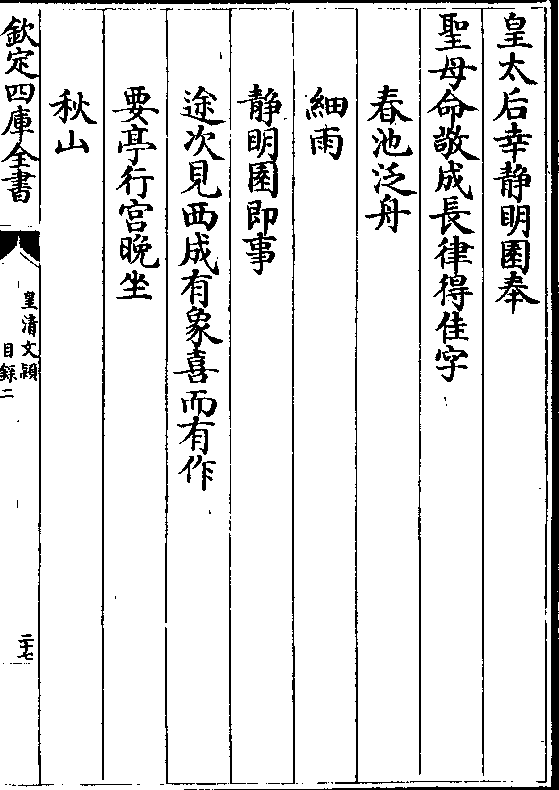 皇太后幸静明園奉
聖母命敬成長律得佳字
春池泛舟
細雨
静明園即事
途次見西成有象喜而有作
要亭行宫晚坐
秋山
欽定四庫全書
皇清文穎
目録二
二十七